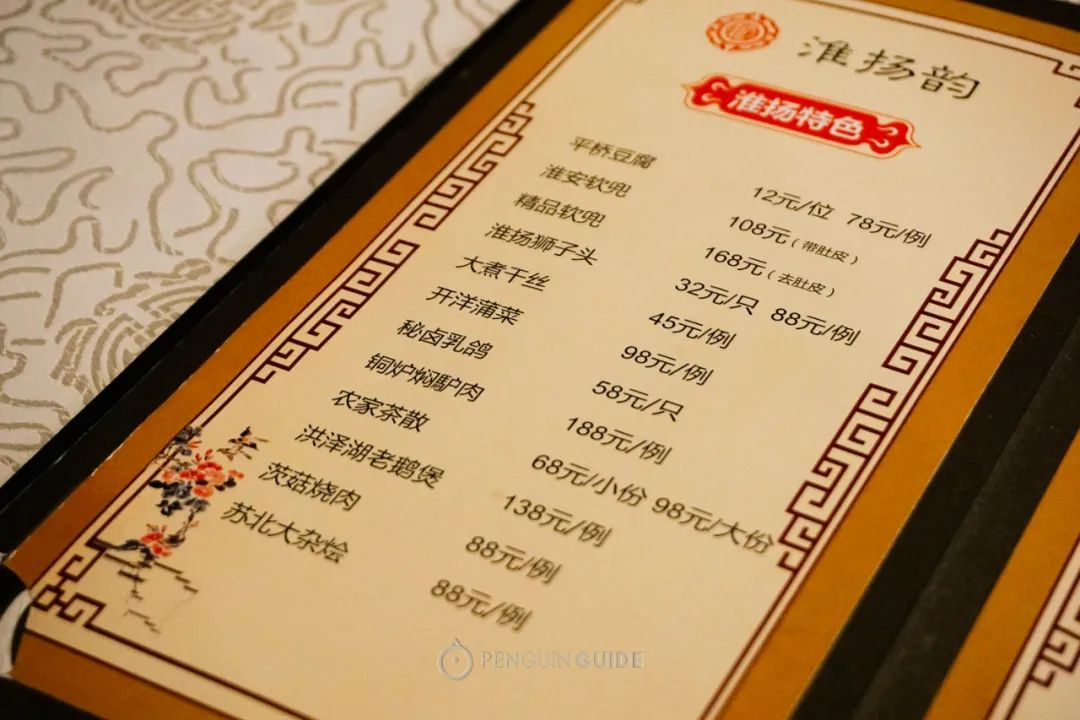 淮扬韵
淮扬特色
平桥豆腐 12元/位 78元/例
淮安软兜 108元（带肚皮）
精品软兜 168元（去肚皮）
淮扬狮子头 32元/只 88元/例
大煮干丝 45元/例
开洋蒲菜 98元/例
秘卤乳鸽 58元/只
铜炉焖馿肉 188元/例
农家茶散 68元/小份 98元/大份
洪泽湖老鹅煲 138元/例
茨菇烧肉 88元/例
苏北大杂烩 88元/例
PENGUIN GUIDE